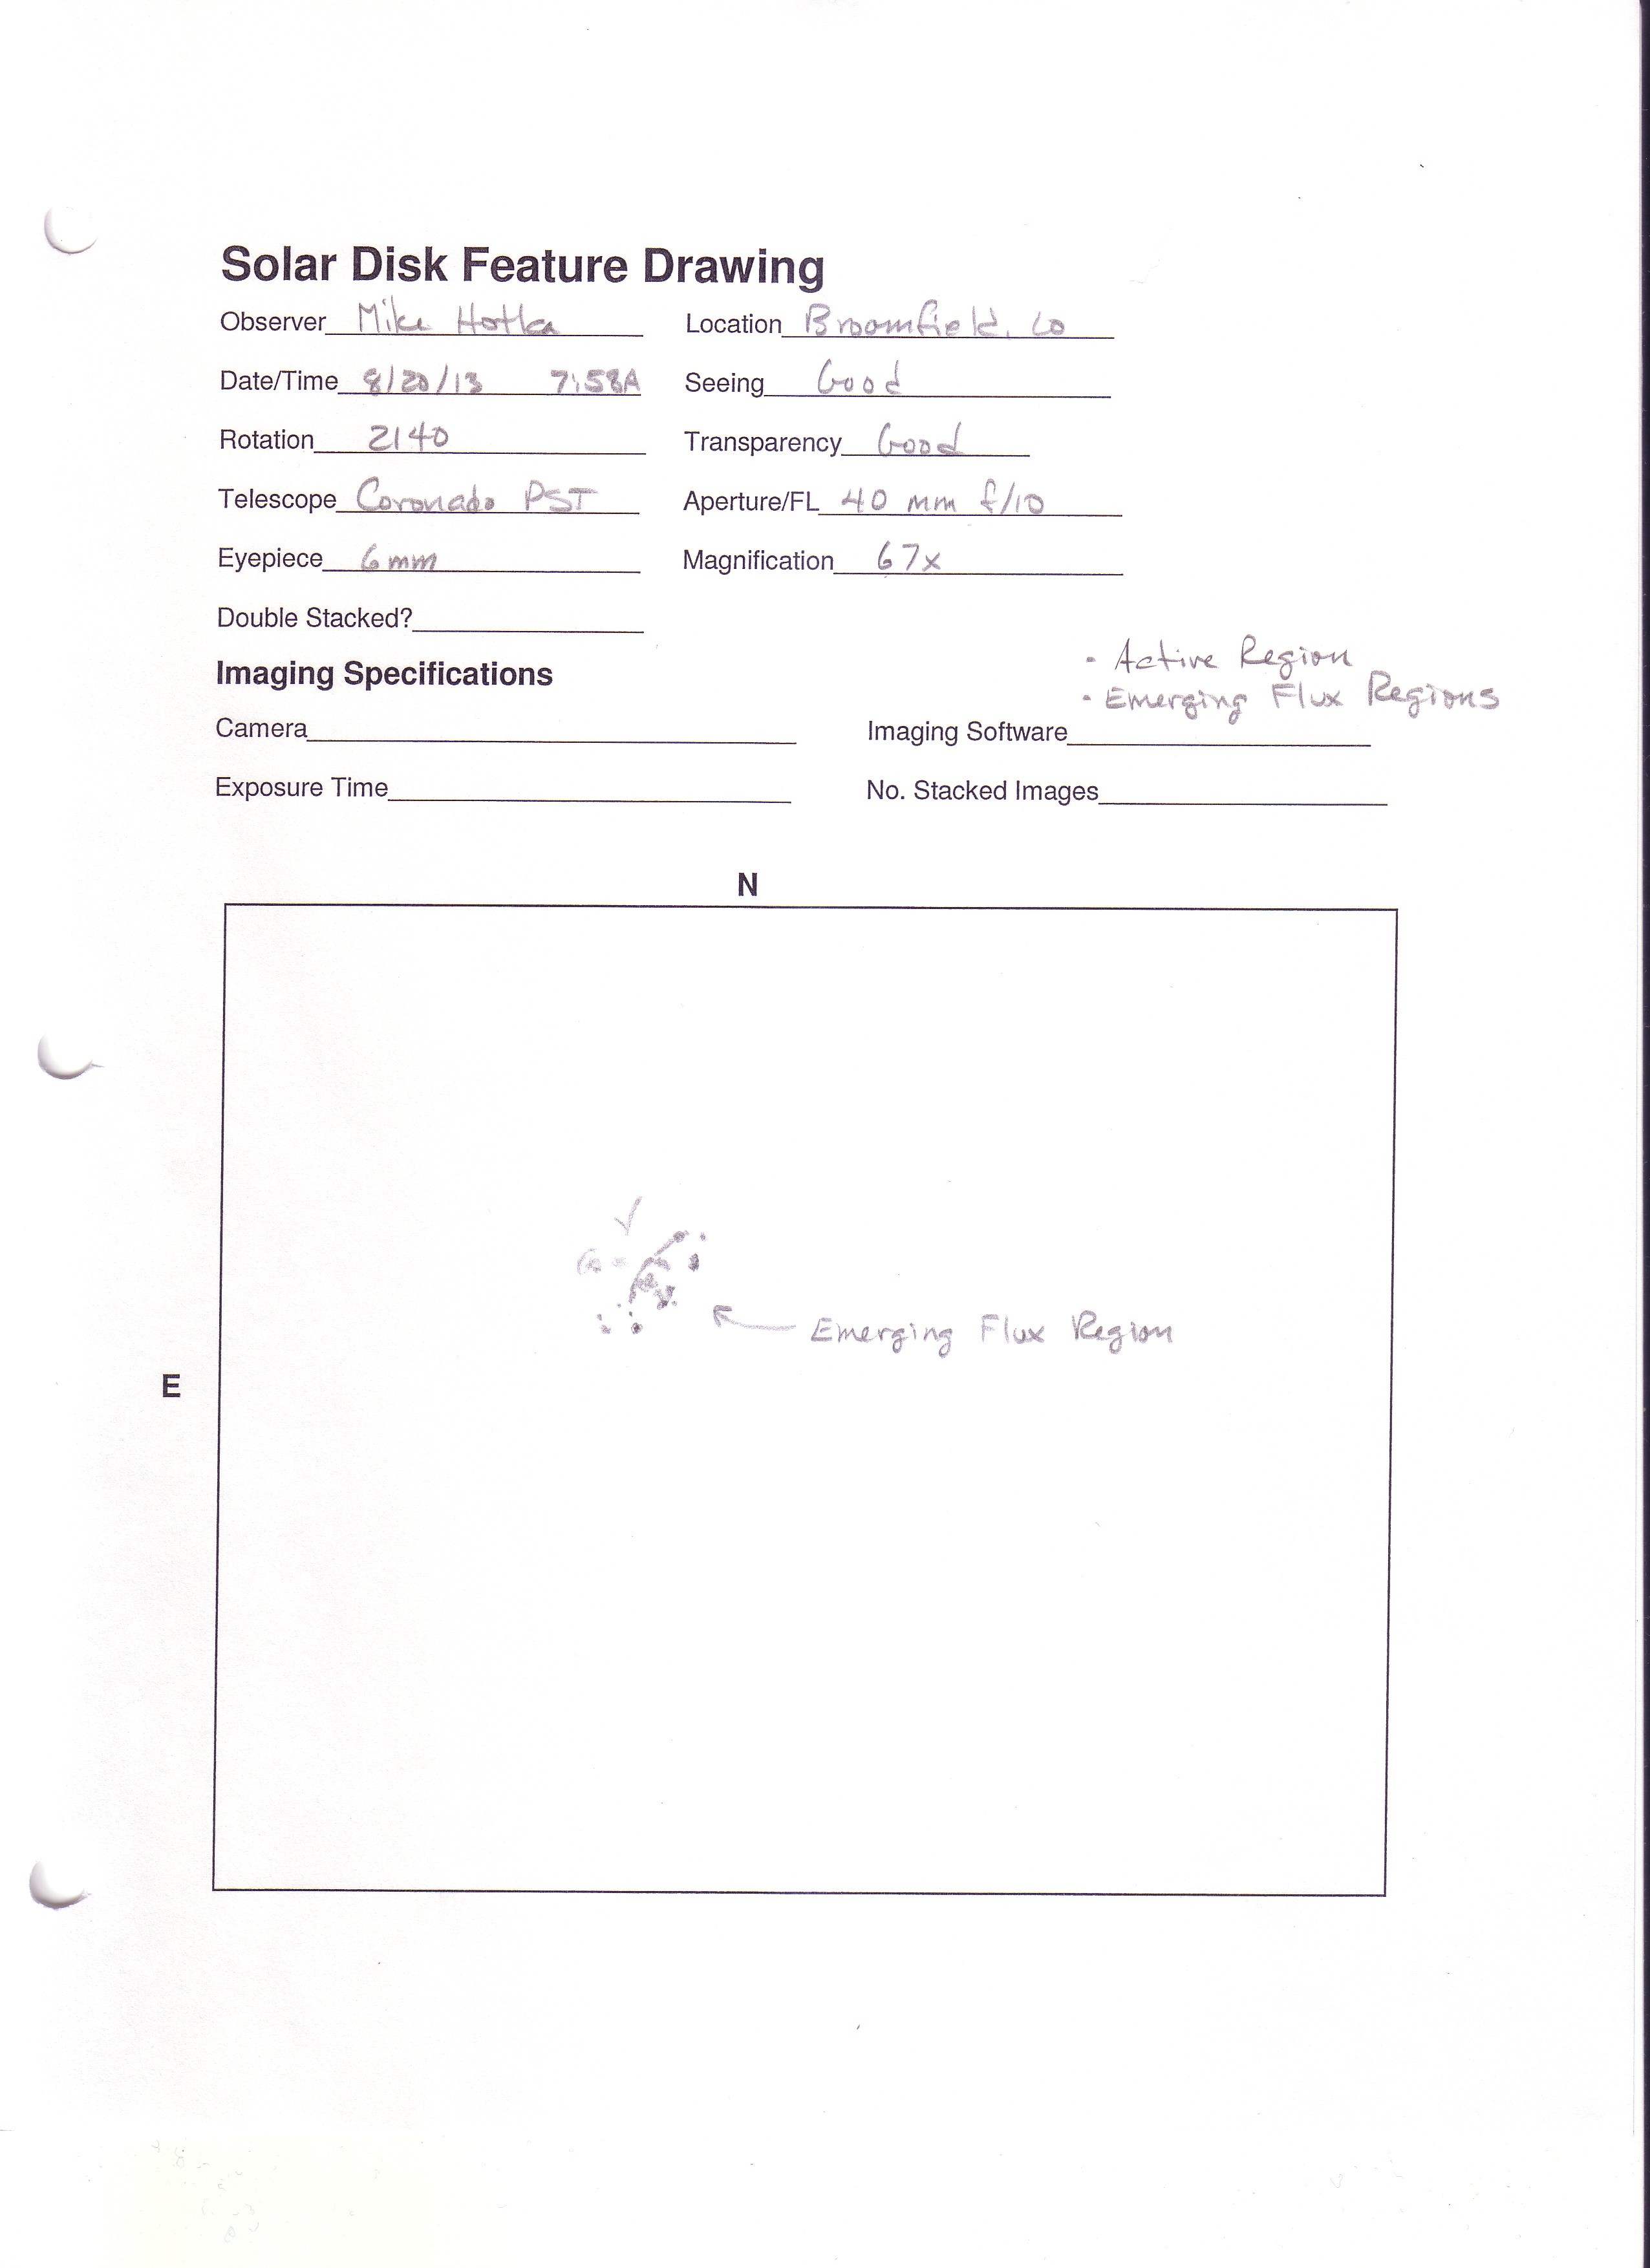 Solar Disk Feature Drawing
Observer Mike Hotka Location Broomfield, CO
Date/Time 8/20/13 7:58A Seeing Good
Rotation 2140 Transparency Good
Telescope Coronado PST Aperture/FL 40 mm f/10
Eyepiece 6mm Magnification 67x
Double Stacked?
· Active Region
Imaging Specifications
· Emerging Flux Regions
Camera Imaging Software
Exposure Time No. Stacked Images
N
Emerging Flux Region
E